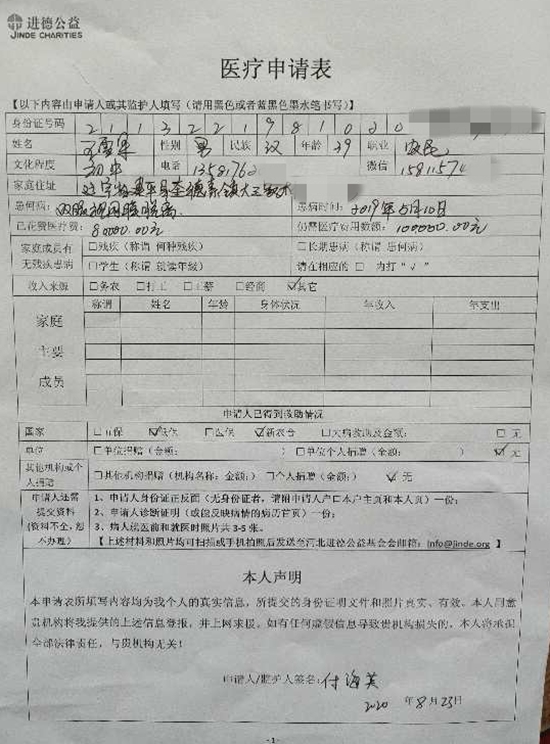 进德公益
JINDE CHARITIES
医疗申请表
【以下内容由申请人或其监护人填写（请用黑色或者蓝黑色墨水笔书写）】
身份证号码 2 1 1 3 2 2 1 9 8 1 0
姓名 性别 男 民族 汉 年龄 39 职业 农民
文化程度 初中 电话 1358176 微信 15811574
家庭住址
患何病： 双眼视网膜脱离 患病时间： 2019年5月10日
已花费医疗费： 80000.00元 仍需医疗费用数额： 100000.00元
家庭成员有无残疾患病 □残疾（称谓 何种残疾） □长期患病（称谓 患何病）
□学生（称谓 就读年级） 请在相应的 □ 内打“√”
收入来源 □务农 □打工 □工薪 □经商 ☑其它
家庭主要成员 称谓 姓名 年龄 身体状况 年收入 年支出
申请人已得到救助情况
国家 □五保 ☑低保 □医保 ☑新农合 □大病救助及金额： □ 无
单位 □单位捐赠（金额： ） □单位个人捐赠（金额：） ☑ 无
其他机构或个人捐赠 □其他机构捐赠（机构名称：金额：） □个人捐赠（金额：） ☑ 无
申请人还需提交资料（资料不全，恕不办理）
1、申请人身份证正反面（无身份证者，请附申请人户口本户主页和本人页）一份；
2、申请人诊断证明（或能反映病情的病历首页）一份；
3、病人就医前和就医时照片共 3-5 张。
【上述材料和照片均可扫描或手机拍照后发送至河北进德公益基金会邮箱：info@jinde.org】
本人声明
本申请表所填写内容均为我个人的真实信息，所提交的身份证明文件和照片真实、有效。本人同意
贵机构将我提供的上述信息登报、并上网求援。如有任何虚假信息导致贵机构损失的，本人将承担
全部法律责任，与贵机构无关！
申请人/监护人签名： 付海英
2020 年 8 月 23 日
-1-